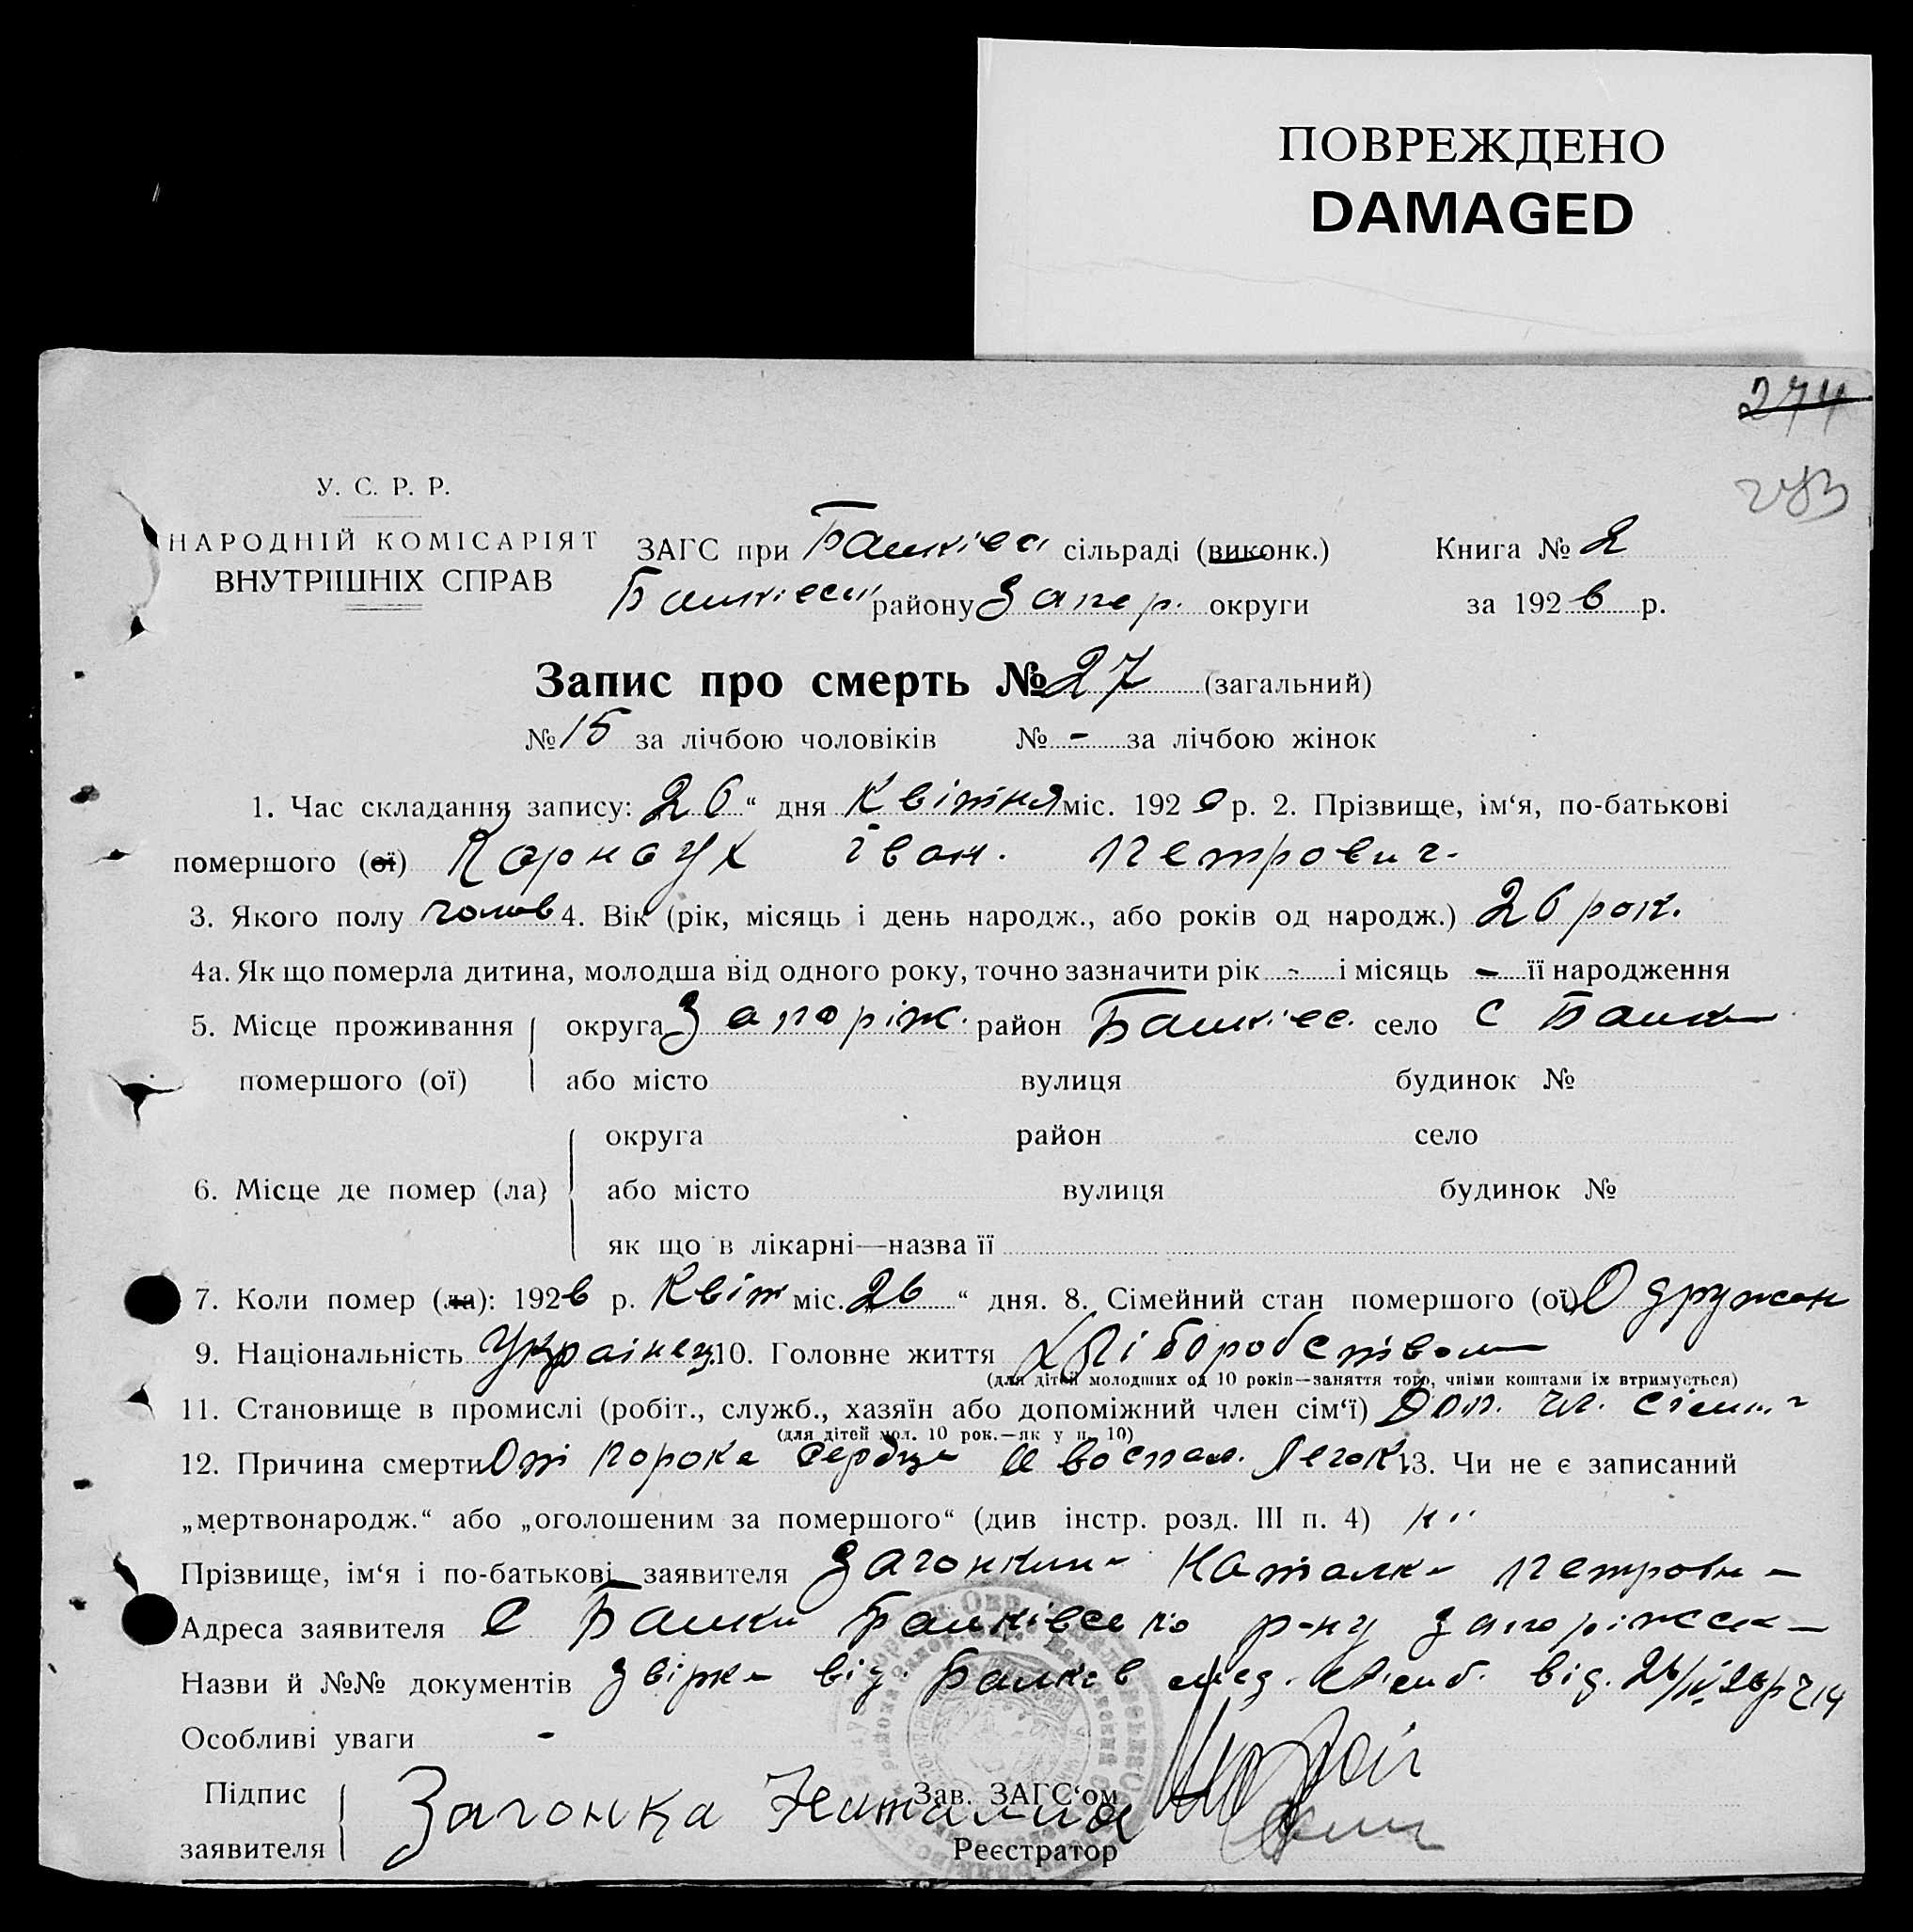 ПОВРЕЖДЕНО
DAMAGED
274
283
У. С. Р. Р.
НАРОДНІЙ КОМІСАРІЯТ
ВНУТРІШНІХ СПРАВ
ЗАГС при сільраді (виконк.) Книга № 2
району Запор. округи за 1926 р.
Запис про смерть № 27 (загальний)
№ 15 за лічбою чоловіків № - за лічбою жінок
1. Час складання запису: 26 “ дня Квітня міс. 1926 р. 2. Прізвище, ім‘я, по-батькові
помершого (ої) Карнаух Іван. Петрович.
3. Якого полу чолов 4. Вік (рік, місяць і день народж., або років од народж.) 26 рок.
4а. Як що померла дитина, молодша від одного року, точно зазначити рік - і місяць - її народження
5. Місце проживання округа Запоріж. район село с
помершого (ої) або місто вулиця будинок №
округа район село
6. Місце де помер (ла) або місто вулиця будинок №
як що в лікарні—назва її
7. Коли помер (ла): 1926 р. Квіт міс. 26 “ дня. 8. Сімейний стан помершого (ої) Одружен
9. Національність Українец 10. Головне життя Хліборобством
(для дітей молодших од 10 років—заняття того, чиїми коштами їх втримується)
11. Становище в промислі (робіт., служб., хазяїн або допоміжний член сім‘ї) Доп. чл. сімї
(для дітей мол. 10 рок.—як у п. 10)
12. Причина смерти От порока сердца и воспал. Легок. 13. Чи не є записаний
„мертвонародж.“ або „оголошеним за помершого“ (див інстр. розд. III п. 4) ні
Прізвище, ім‘я і по-батькові заявителя Наталка Петровна
Адреса заявителя С р-ну
Назви й №№ документів від. від. 26/IV 26р
Особливі уваги -
Підпис Загонка Наталия Зав. ЗАГС‘ом
заявителя Реєстратор